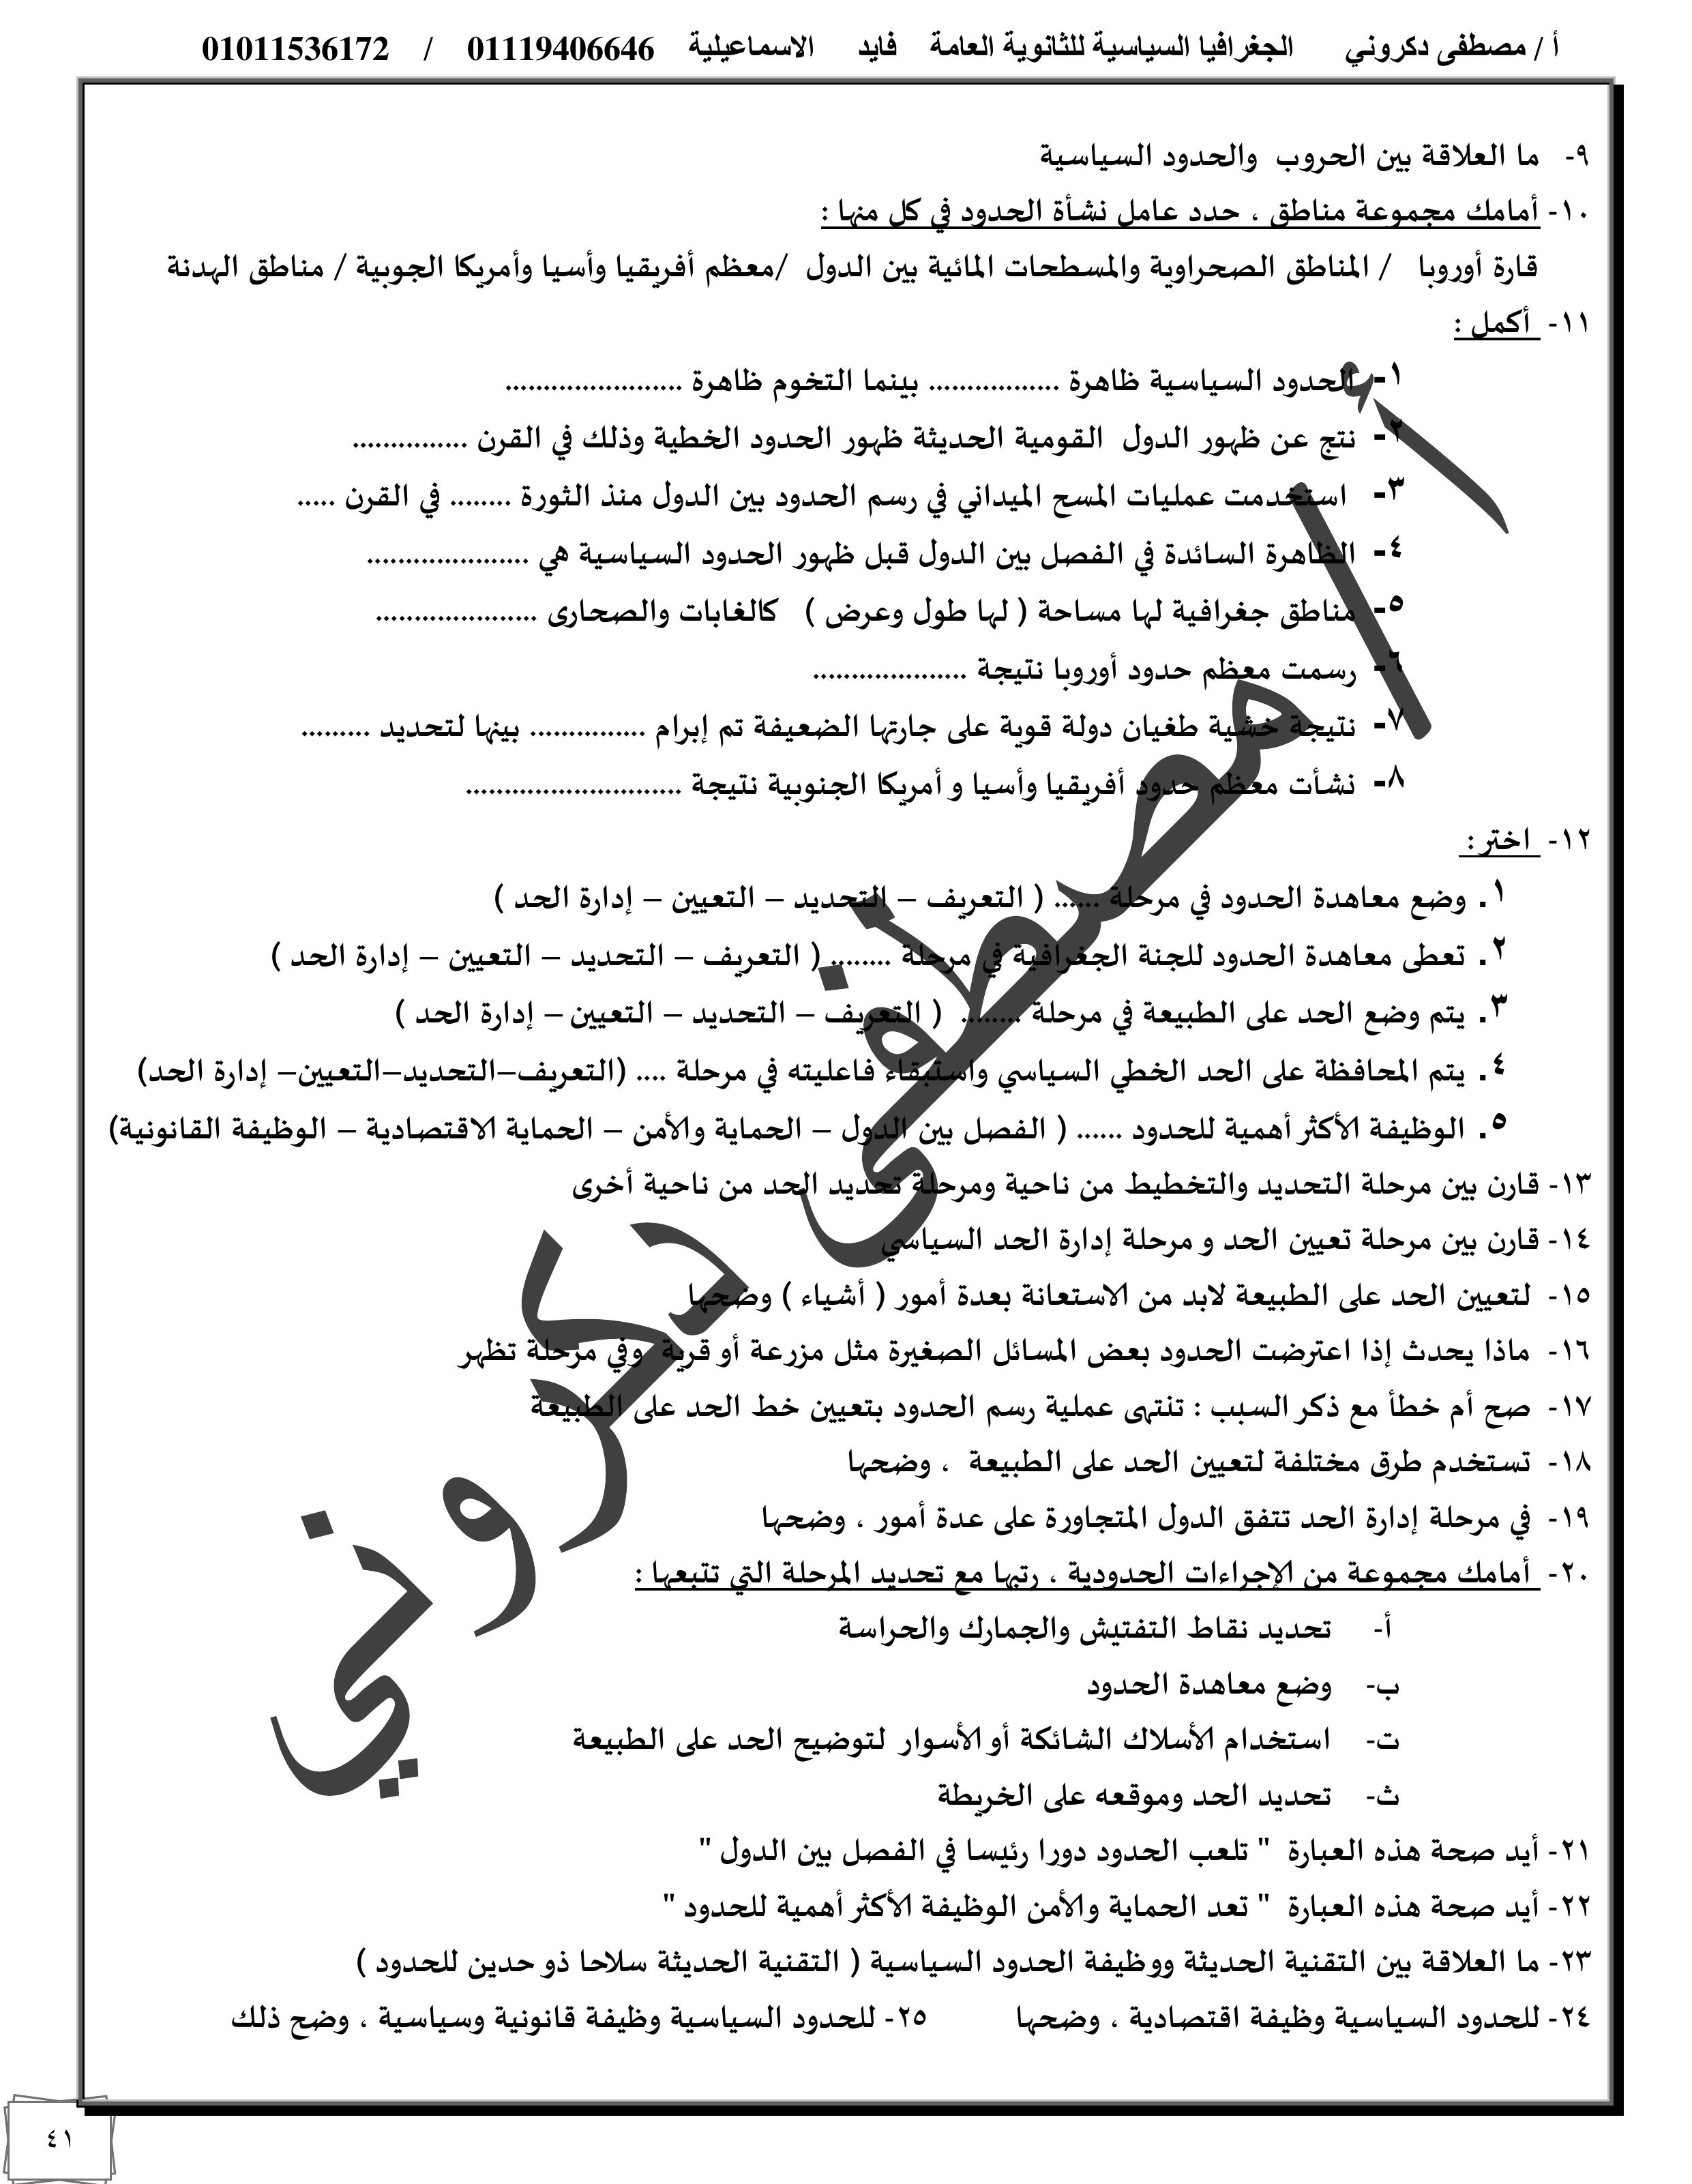 أ / مصطفى دكروني الجغرافيا السياسية للثانوية العامة فايد الاسماعيلية 01119406646 / 01011536172
٩- ما العلاقة بين الحروب والحدود السياسية
١٠- أمامك مجموعة مناطق ، حدد عامل نشأة الحدود في كل منها :
قارة أوروبا / المناطق الصحراوية والمسطحات المائية بين الدول /معظم أفريقيا وأسيا وأمريكا الجوبية / مناطق الهدنة
١١- أكمل :
١- الحدود السياسية ظاهرة ................. بينما التخوم ظاهرة .......................
٢- نتج عن ظهور الدول القومية الحديثة ظهور الحدود الخطية وذلك في القرن ...............
٣- استخدمت عمليات المسح الميداني في رسم الحدود بين الدول منذ الثورة ........ في القرن .....
٤- الظاهرة السائدة في الفصل بين الدول قبل ظهور الحدود السياسية هي .....................
٥- مناطق جغرافية لها مساحة ( لها طول وعرض ) كالغابات والصحارى .....................
٦- رسمت معظم حدود أوروبا نتيجة ....................
٧- نتيجة خشية طغيان دولة قوية على جارتها الضعيفة تم إبرام ............... بينها لتحديد .........
٨- نشأت معظم حدود أفريقيا وأسيا و أمريكا الجنوبية نتيجة ............................
١٢- اختر :
١. وضع معاهدة الحدود في مرحلة ...... ( التعريف – التحديد – التعيين – إدارة الحد )
٢. تعطى معاهدة الحدود للجنة الجغرافية في مرحلة ........ ( التعريف – التحديد – التعيين – إدارة الحد )
٣. يتم وضع الحد على الطبيعة في مرحلة ........ ( التعريف – التحديد – التعيين – إدارة الحد )
٤. يتم المحافظة على الحد الخطي السياسي واستبقاء فاعليته في مرحلة .... (التعريف–التحديد–التعيين– إدارة الحد)
٥. الوظيفة الأكثر أهمية للحدود ...... ( الفصل بين الدول – الحماية والأمن – الحماية الاقتصادية – الوظيفة القانونية)
١٣- قارن بين مرحلة التحديد والتخطيط من ناحية ومرحلة تحديد الحد من ناحية أخرى
١٤- قارن بين مرحلة تعيين الحد و مرحلة إدارة الحد السياسي
١٥- لتعيين الحد على الطبيعة لابد من الاستعانة بعدة أمور ( أشياء ) وضحها
١٦- ماذا يحدث إذا اعترضت الحدود بعض المسائل الصغيرة مثل مزرعة أو قرية وفي مرحلة تظهر
١٧- صح أم خطأ مع ذكر السبب : تنتهى عملية رسم الحدود بتعيين خط الحد على الطبيعة
١٨- تستخدم طرق مختلفة لتعيين الحد على الطبيعة ، وضحها
١٩- في مرحلة إدارة الحد تتفق الدول المتجاورة على عدة أمور ، وضحها
٢٠- أمامك مجموعة من الإجراءات الحدودية ، رتبها مع تحديد المرحلة التي تتبعها :
أ- تحديد نقاط التفتيش والجمارك والحراسة
ب- وضع معاهدة الحدود
ت- استخدام الأسلاك الشائكة أو الأسوار لتوضيح الحد على الطبيعة
ث- تحديد الحد وموقعه على الخريطة
٢١- أيد صحة هذه العبارة " تلعب الحدود دورا رئيسا في الفصل بين الدول "
٢٢- أيد صحة هذه العبارة " تعد الحماية والأمن الوظيفة الأكثر أهمية للحدود "
٢٣- ما العلاقة بين التقنية الحديثة ووظيفة الحدود السياسية ( التقنية الحديثة سلاحا ذو حدين للحدود )
٢٤- للحدود السياسية وظيفة اقتصادية ، وضحها ٢٥- للحدود السياسية وظيفة قانونية وسياسية ، وضح ذلك
أ / مصطفى دكروني
٤١